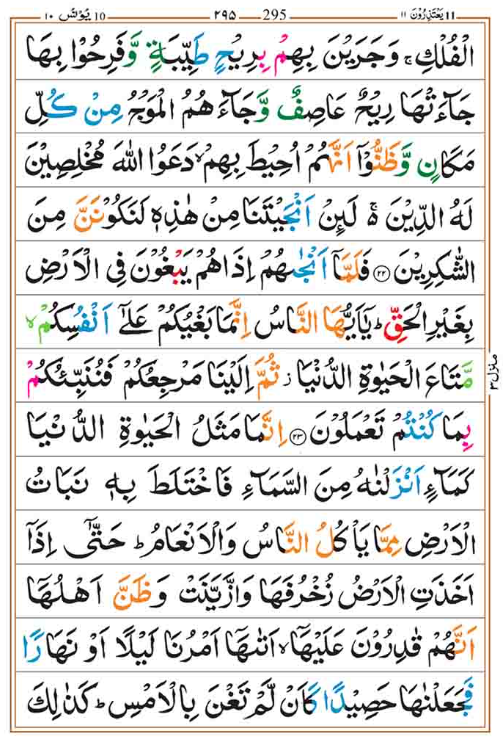 یونس ۱۰ 10 ۲۹۵ 295 یعتذرون ۱۱ 11
الْفُلْكِ ۚ وَجَرَيْنَ بِهِمْ بِرِيْحٍ طَيِّبَةٍ وَّفَرِحُوْا بِهَا
جَآءَتْهَا رِيْحٌ عَاصِفٌ وَّجَآءَهُمُ الْمَوْجُ مِنْ كُلِّ
مَكَانٍ وَّظَنُّوْۤا اَنَّهُمْ اُحِيْطَ بِهِمْ ۙ دَعَوُا اللّٰهَ مُخْلِصِيْنَ
لَهُ الدِّيْنَ ۬ ۚ لَئِنْ اَنْجَيْتَنَا مِنْ هٰذِهٖ لَنَكُوْنَنَّ مِنَ
الشّٰكِرِيْنَ ﴿۲۲﴾ فَلَمَّاۤ اَنْجٰىهُمْ اِذَا هُمْ يَبْغُوْنَ فِى الْاَرْضِ
بِغَيْرِ الْحَقِّ ؕ يٰۤاَيُّهَا النَّاسُ اِنَّمَا بَغْيُكُمْ عَلٰٓى اَنْفُسِكُمْ ۙ
مَّتَاعَ الْحَيٰوةِ الدُّنْيَا ؗ ثُمَّ اِلَيْنَا مَرْجِعُكُمْ فَنُنَبِّئُكُمْ
بِمَا كُنْتُمْ تَعْمَلُوْنَ ﴿۲۳﴾ اِنَّمَا مَثَلُ الْحَيٰوةِ الدُّنْيَا
كَمَآءٍ اَنْزَلْنٰهُ مِنَ السَّمَآءِ فَاخْتَلَطَ بِهٖ نَبَاتُ
الْاَرْضِ مِمَّا يَاْكُلُ النَّاسُ وَالْاَنْعَامُ ؕ حَتّٰۤى اِذَاۤ
اَخَذَتِ الْاَرْضُ زُخْرُفَهَا وَازَّيَّنَتْ وَظَنَّ اَهْلُهَاۤ
اَنَّهُمْ قٰدِرُوْنَ عَلَيْهَاۤ ۙ اَتٰىهَاۤ اَمْرُنَا لَيْلًا اَوْ نَهَارًا
فَجَعَلْنٰهَا حَصِيْدًا كَاَنْ لَّمْ تَغْنَ بِالْاَمْسِ ؕ كَذٰلِكَ
منزل ۳